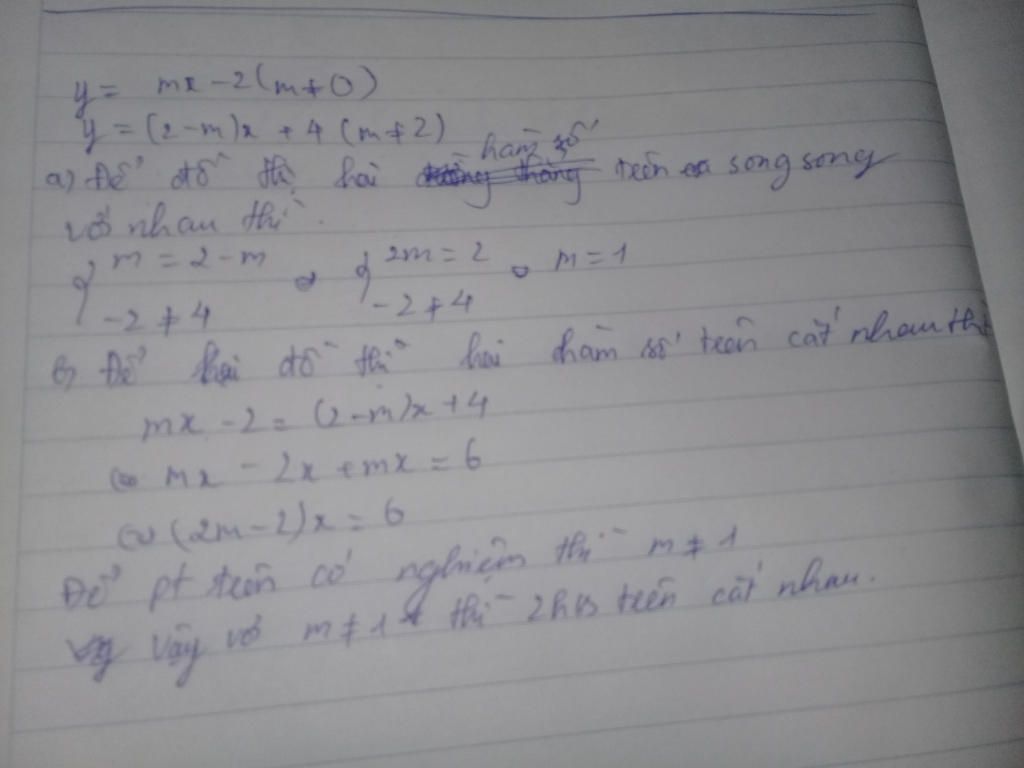 y = mx - 2 (m ≠ 0)
y = (2-m)x + 4 (m ≠ 2)
hàm số
a) Để đồ thị hai trên song song
với nhau thì
{ m = 2 - m ⇔ { 2m = 2 ⇔ m = 1
-2 ≠ 4 -2 ≠ 4
b) Để hai đồ thị hai hàm số trên cắt nhau thì
mx - 2 = (2-m)x + 4
⇔ mx - 2x + mx = 6
⇔ (2m - 2)x = 6
Để pt trên có nghiệm thì m ≠ 1
Vậy với m ≠ 1 thì 2 hs trên cắt nhau.